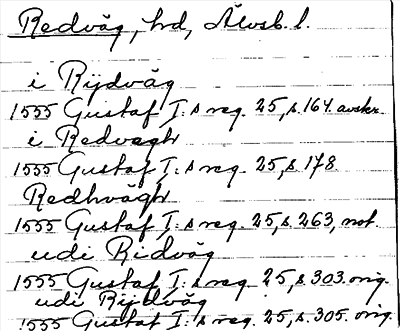 Redväg, hd, Älvsb. l.
i Rijdväg
1555 Gustaf I:s reg. 25, s. 164. avskr.
i Redvegh
1555 Gustaf I:s reg. 25, s. 178.
Redhvägh
1555 Gustaf I:s reg. 25, s. 263, not.
udi Ridväg
1555 Gustaf I:s reg. 25, s. 303. orig.
udi Rijdväg
1555 Gustaf I:s reg. 25, s. 305. orig.